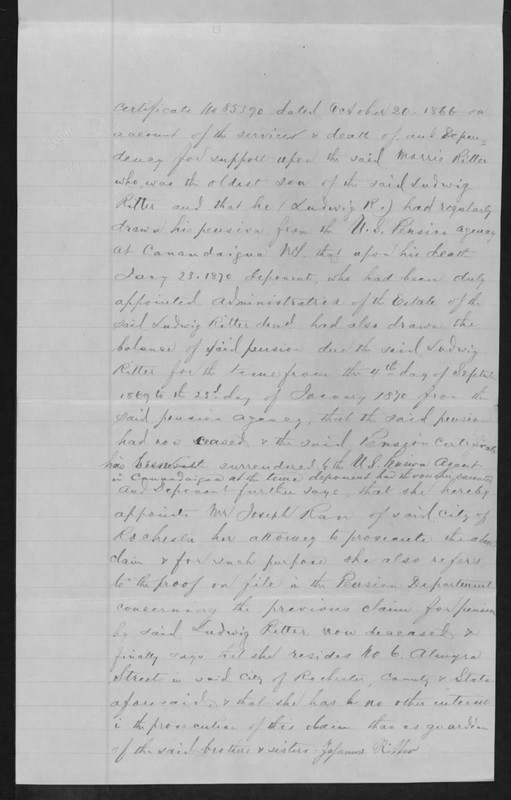 Certificate No 85390 dated October 20. 1866 on
account of the services & death of and Depen=
dency for support upon the said Morris Ritter
who was the oldest son of the said Ludwig
Ritter and that he (Ludwig R.) had regularly
drawn his pension from the U.S. Pension agency
at Canandaigua NY. that upon his death
Jany 23. 1870 deponent, who had been duly
appointed Administratrix of the Estate of the
said Ludwig Ritter decd had also drawn the
balance of said pension due the said Ludwig
Ritter for the time from the 4th day of Septbr
1869 to the 23d day of January 1870 from the
said pension agency, that the said pension
had now ceased & the said Pension Certificate
has surrendered to the U.S. Pension Agent
in Canandaigua at the time deponent had the voucher executed
And Deponent further says, that she hereby
appoints Mr Joseph Rau of said City of
Rochester her attorney to prosecute the above
claim & for such purpose she also refers
to the proof on file in the Pension Department
concerning the previous claim for pension
by said Ludwig Ritter now deceased &
finally says that she resides No 6. Almyra
Street in said City of Rochester, County & State
aforesaid, & that she has no other interest
in the prosecution of this claim than as guardian
of the said brothers & sisters. Johanna Ritter